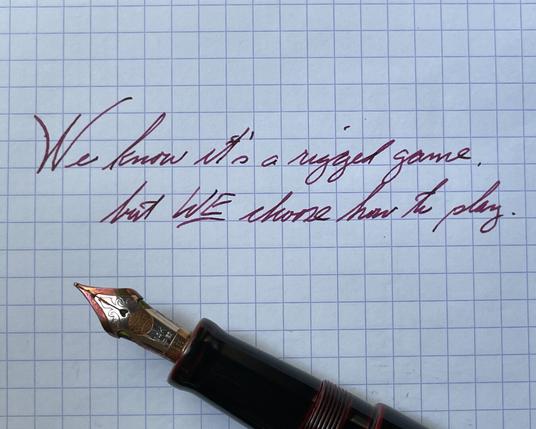 We know it's a rigged game.
but WE choose how to play.